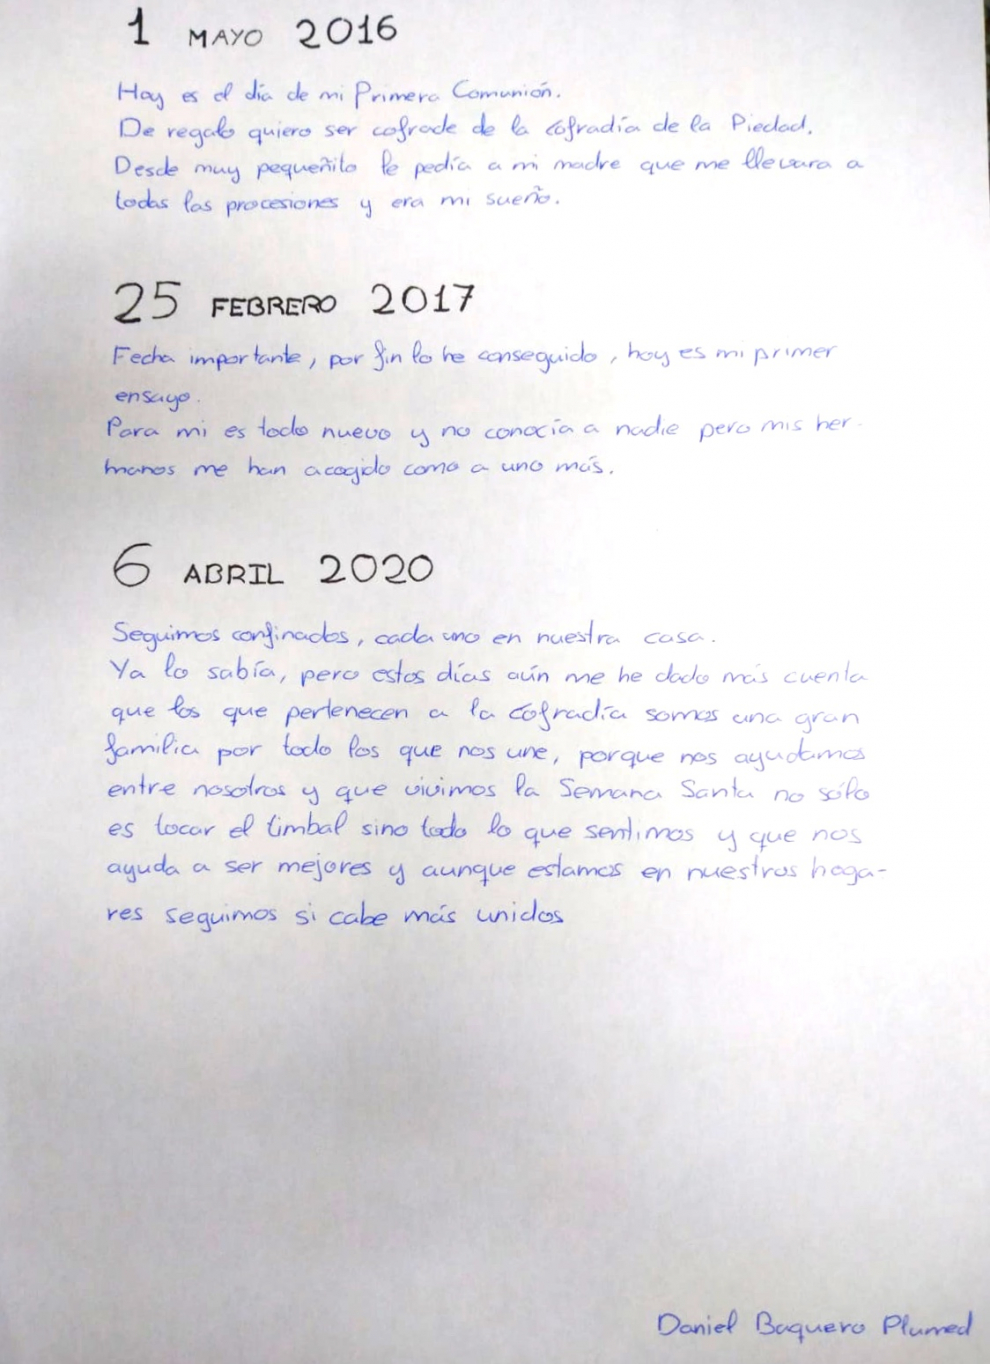 1 MAYO 2016
Hoy es el día de mi Primera Comunión.
De regalo quiero ser cofrade de la cofradía de la Piedad.
Desde muy pequeñito le pedía a mi madre que me llevara a
todas las procesiones y era mi sueño.
25 FEBRERO 2017
Fecha importante, por fin lo he conseguido, hoy es mi primer
ensayo.
Para mi es todo nuevo y no conocía a nadie pero mis her-
manos me han acogido como a uno más.
6 ABRIL 2020
Seguimos confinados, cada uno en nuestra casa.
Ya lo sabía, pero estos días aún me he dado más cuenta
que los que pertenecen a la cofradía somos una gran
familia por todo los que nos une, porque nos ayudamos
entre nosotros y que vivimos la Semana Santa no sólo
es tocar el timbal sino todo lo que sentimos y que nos
ayuda a ser mejores y aunque estamos en nuestros hoga-
res seguimos si cabe más unidos
Daniel Baquero Plumed